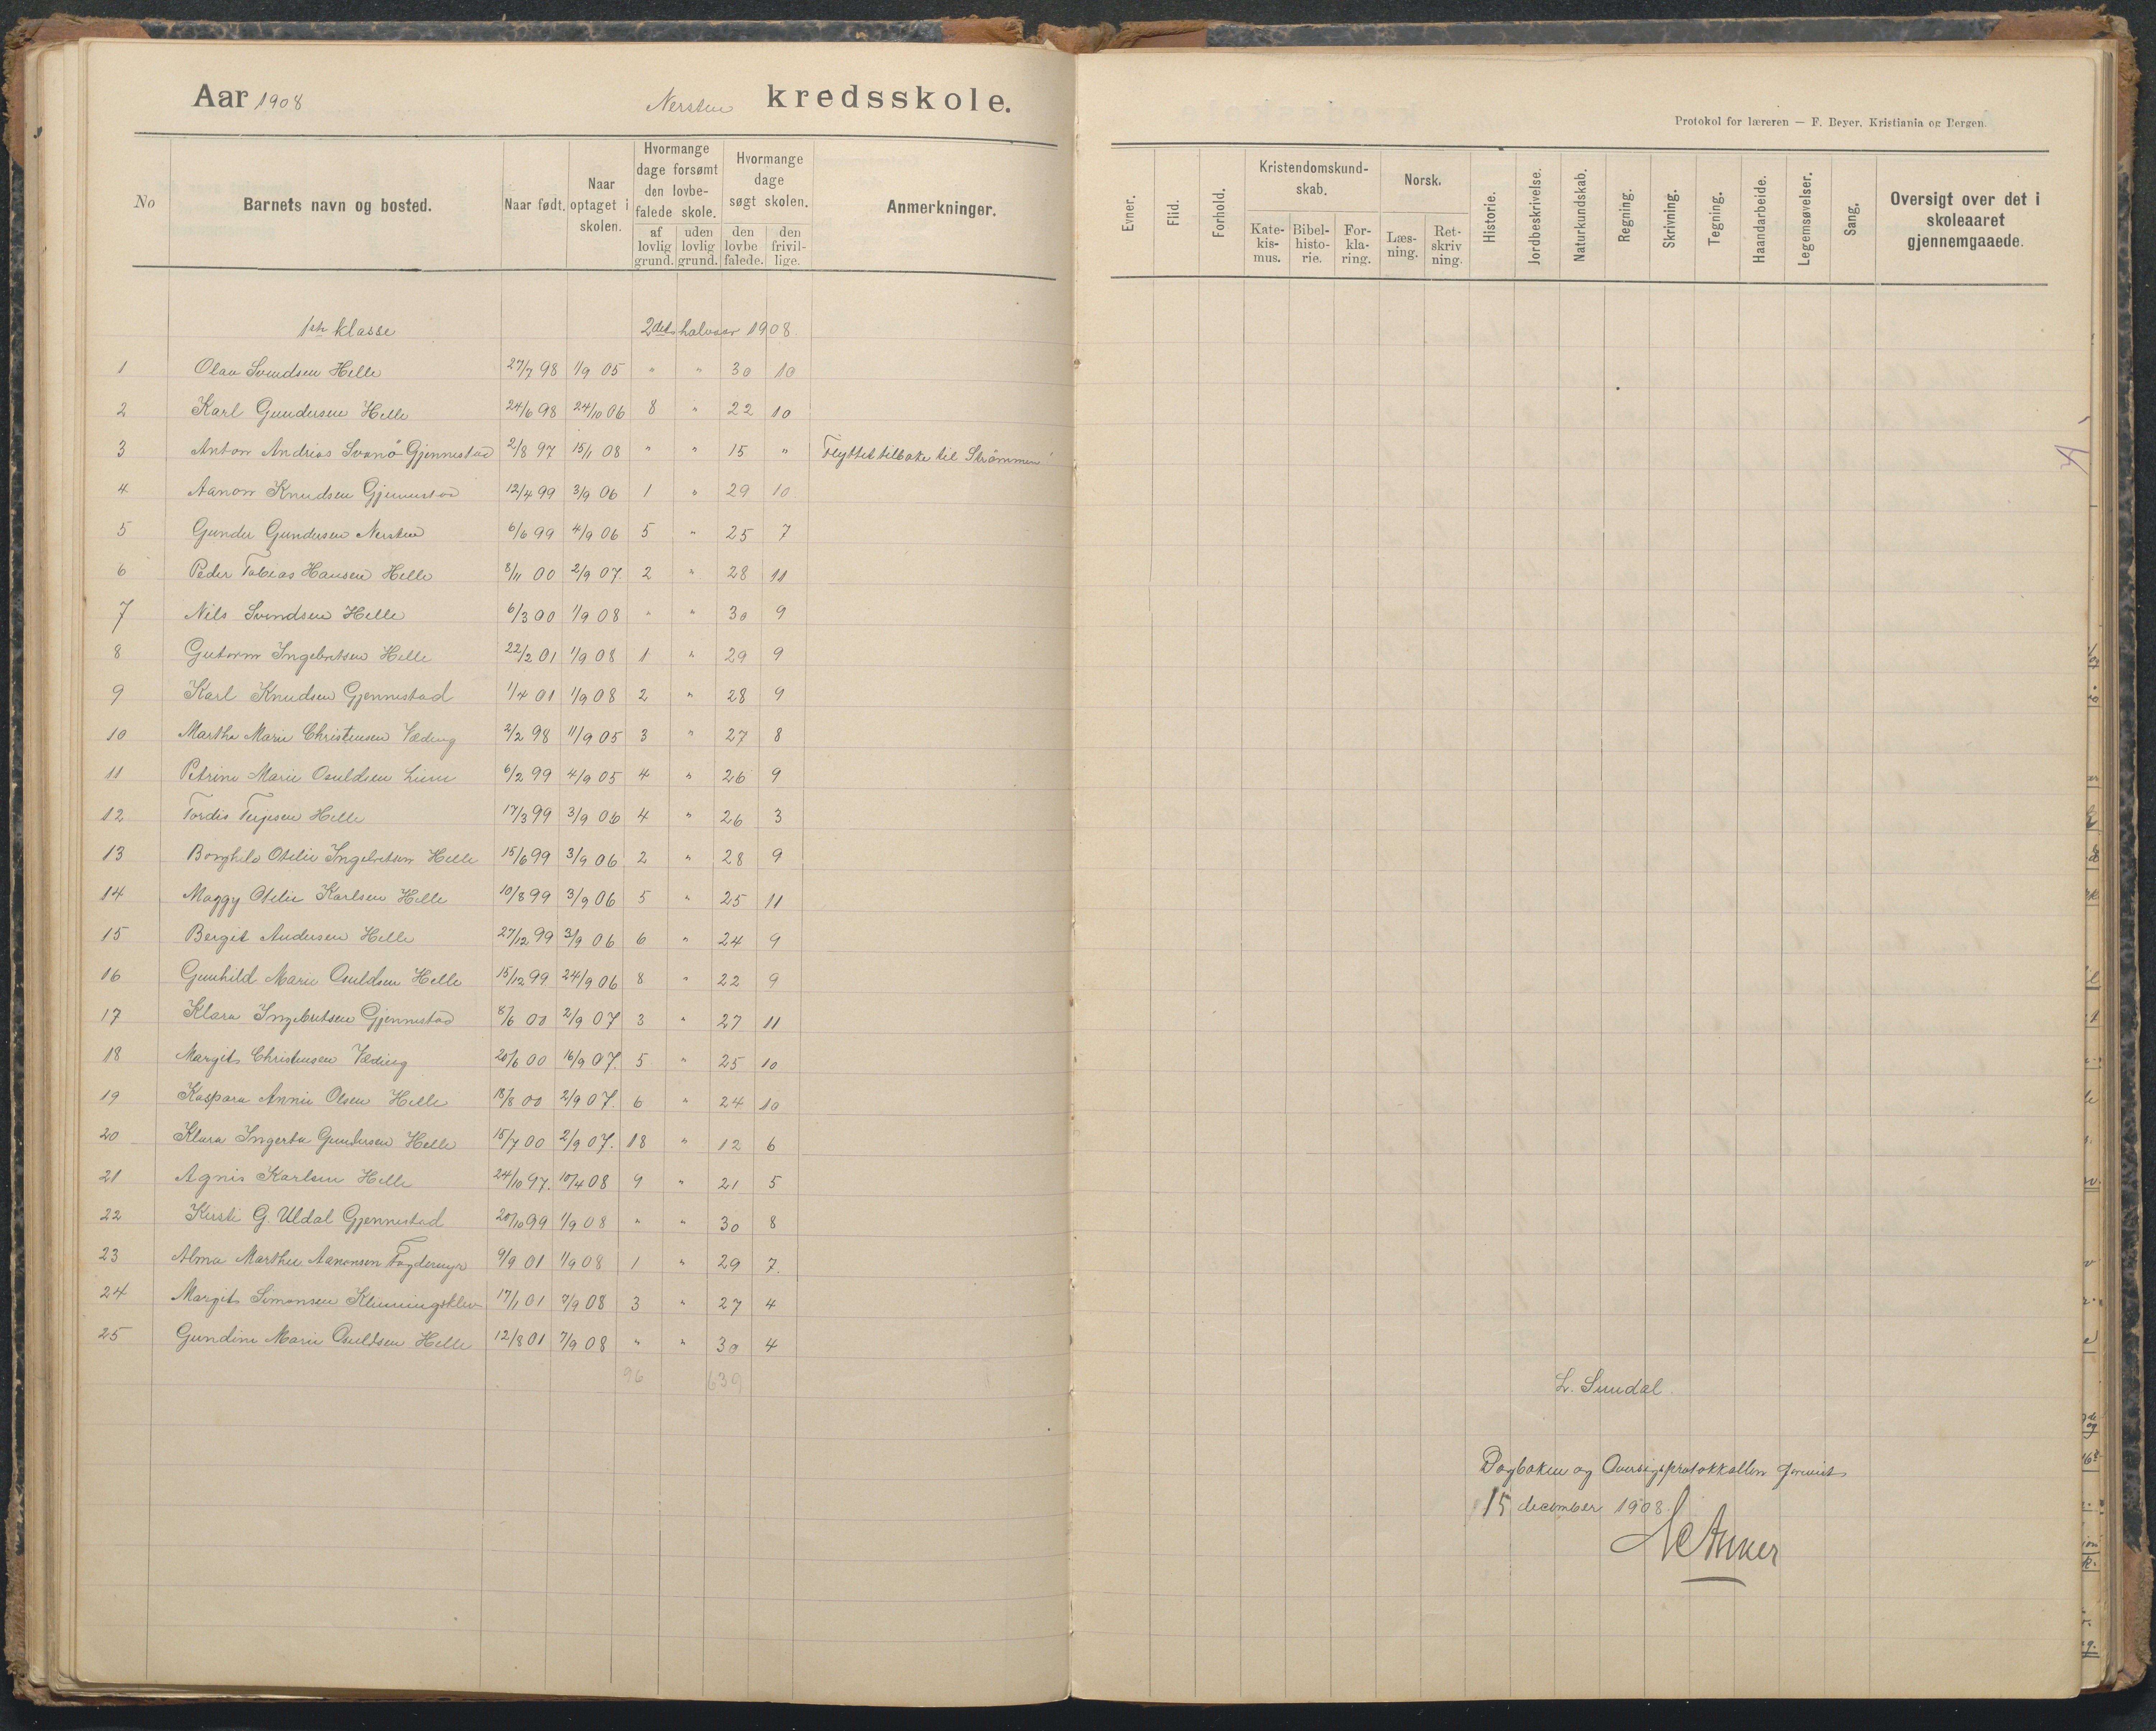 Aar 1908 Nersten kredsskole.
Protokol for læreren — F. Beyer, Kristiania og Bergen.
No Barnets navn og bosted. Naar født. Naar optaget i skolen. Hvormange dage forsømt den lovbefalede skole. af lovlig grund. uden lovlig grund. Hvormange dage søgt skolen. den lovbefalede. den frivillige. Anmerkninger.
Evner. Flid. Forhold. Kristendomskundskab. Katekismus. Bibelhistorie. Forklaring. Norsk. Læsning. Retskrivning. Historie. Jordbeskrivelse. Naturkundskab. Regning. Skrivning. Tegning. Haandarbeide. Legemsøvelser. Sang. Oversigt over det i skoleaaret gjennemgaaede.
1ste klasse 2det halvaar 1908
1 Olav Svendsen Helle 27/7 98 1/9 05 " " 30 10
2 Karl Gundersen Helle 24/6 98 24/10 06 8 " 22 10
3 Anton Andrias Svanö Gjennestad 2/8 97 15/1 08 " " 15 " Flyttet tilbake til Strömmen
4 Aanon Knudsen Gjennestad 12/4 99 3/9 06 1 " 29 10
5 Gunder Gundersen Nersten 6/6 99 4/9 06 5 " 25 7
6 Peder Tobias Hansen Helle 8/11 00 2/9 07. 2 " 28 11
7 Nils Svendsen Helle 6/3 00 1/9 08 " " 30 9
8 Gutorm Ingebretsen Helle 22/2 01 1/9 08 1 " 29 9
9 Karl Knudsen Gjennestad 1/4 01 1/9 08 2 " 28 9
10 Martha Marie Christensen Væding 2/2 98 11/9 05 3 " 27 8
11 Petrine Marie Osuldsen Liene 6/2 99 4/9 05 4 " 26 9
12 Tordis Terjesen Helle 17/3 99 3/9 06 4 " 26 3
13 Borghild Otelie Ingebretsen Helle 15/6 99 3/9 06 2 " 28 9
14 Maggy Otelie Karlsen Helle 10/8 99 3/9 06 5 " 25 11
15 Bergit Andersen Helle 27/12 99 3/9 06 6 " 24 9
16 Gunhild Marie Osuldsen Helle 15/12 99 24/9 06 8 " 22 9
17 Klara Ingebretsen Gjennestad 8/6 00 2/9 07 3 " 27 11
18 Margit Christensen Væding 20/6 00 16/9 07. 5 " 25 10
19 Kaspara Annie Olsen Helle 18/8 00 2/9 07. 6 " 24 10
20 Klara Ingerta Gundersen Helle 15/7 00 2/9 07. 18 " 12 6
21 Agnis Karlsen Helle 24/10 97. 10/4 08 9 " 21 5
22 Kirsti G. Uldal Gjennestad 20/10 99 1/9 08 " " 30 8
23 Alma Marthee Aanonsen Fogdemyr 9/9 01 1/9 08 1 " 29 7.
24 Margit Simonsen 17/1 01 7/9 08 3 " 27 4
25 Gundine Marie Osuldsen Helle 12/8 01 7/9 08 " " 30 4
96 639
L. Sundal.
Dagboken og Oversigtsprotokkollen
15 december 1908.